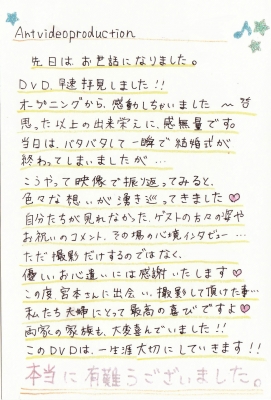 Antvideoproduction
先日は、お世話になりました。
DVD、早速拝見しました!!
オープニングから、感動しちゃいました〜
思った以上の出来栄えに、感無量です。
当日は、バタバタして一瞬で結婚式が
終わってしまいましたが…
こうやって映像で振り返ってみると、
色々な想いが湧き返ってきました♡
自分たちが見れなかった、ゲストの方々の姿や
お祝いのコメント、その場の心境インタビュー…
ただ撮影だけするのではなく、
優しいお心遣いには感謝いたします♡
この度、宮本さんに出会い、撮影して頂けた事…
私たち夫婦にとって最高の喜びですよ♡
両家の家族も、大変喜んでいました!!
このDVDは、一生涯大切にしていきます!!
本当に有難うございました。